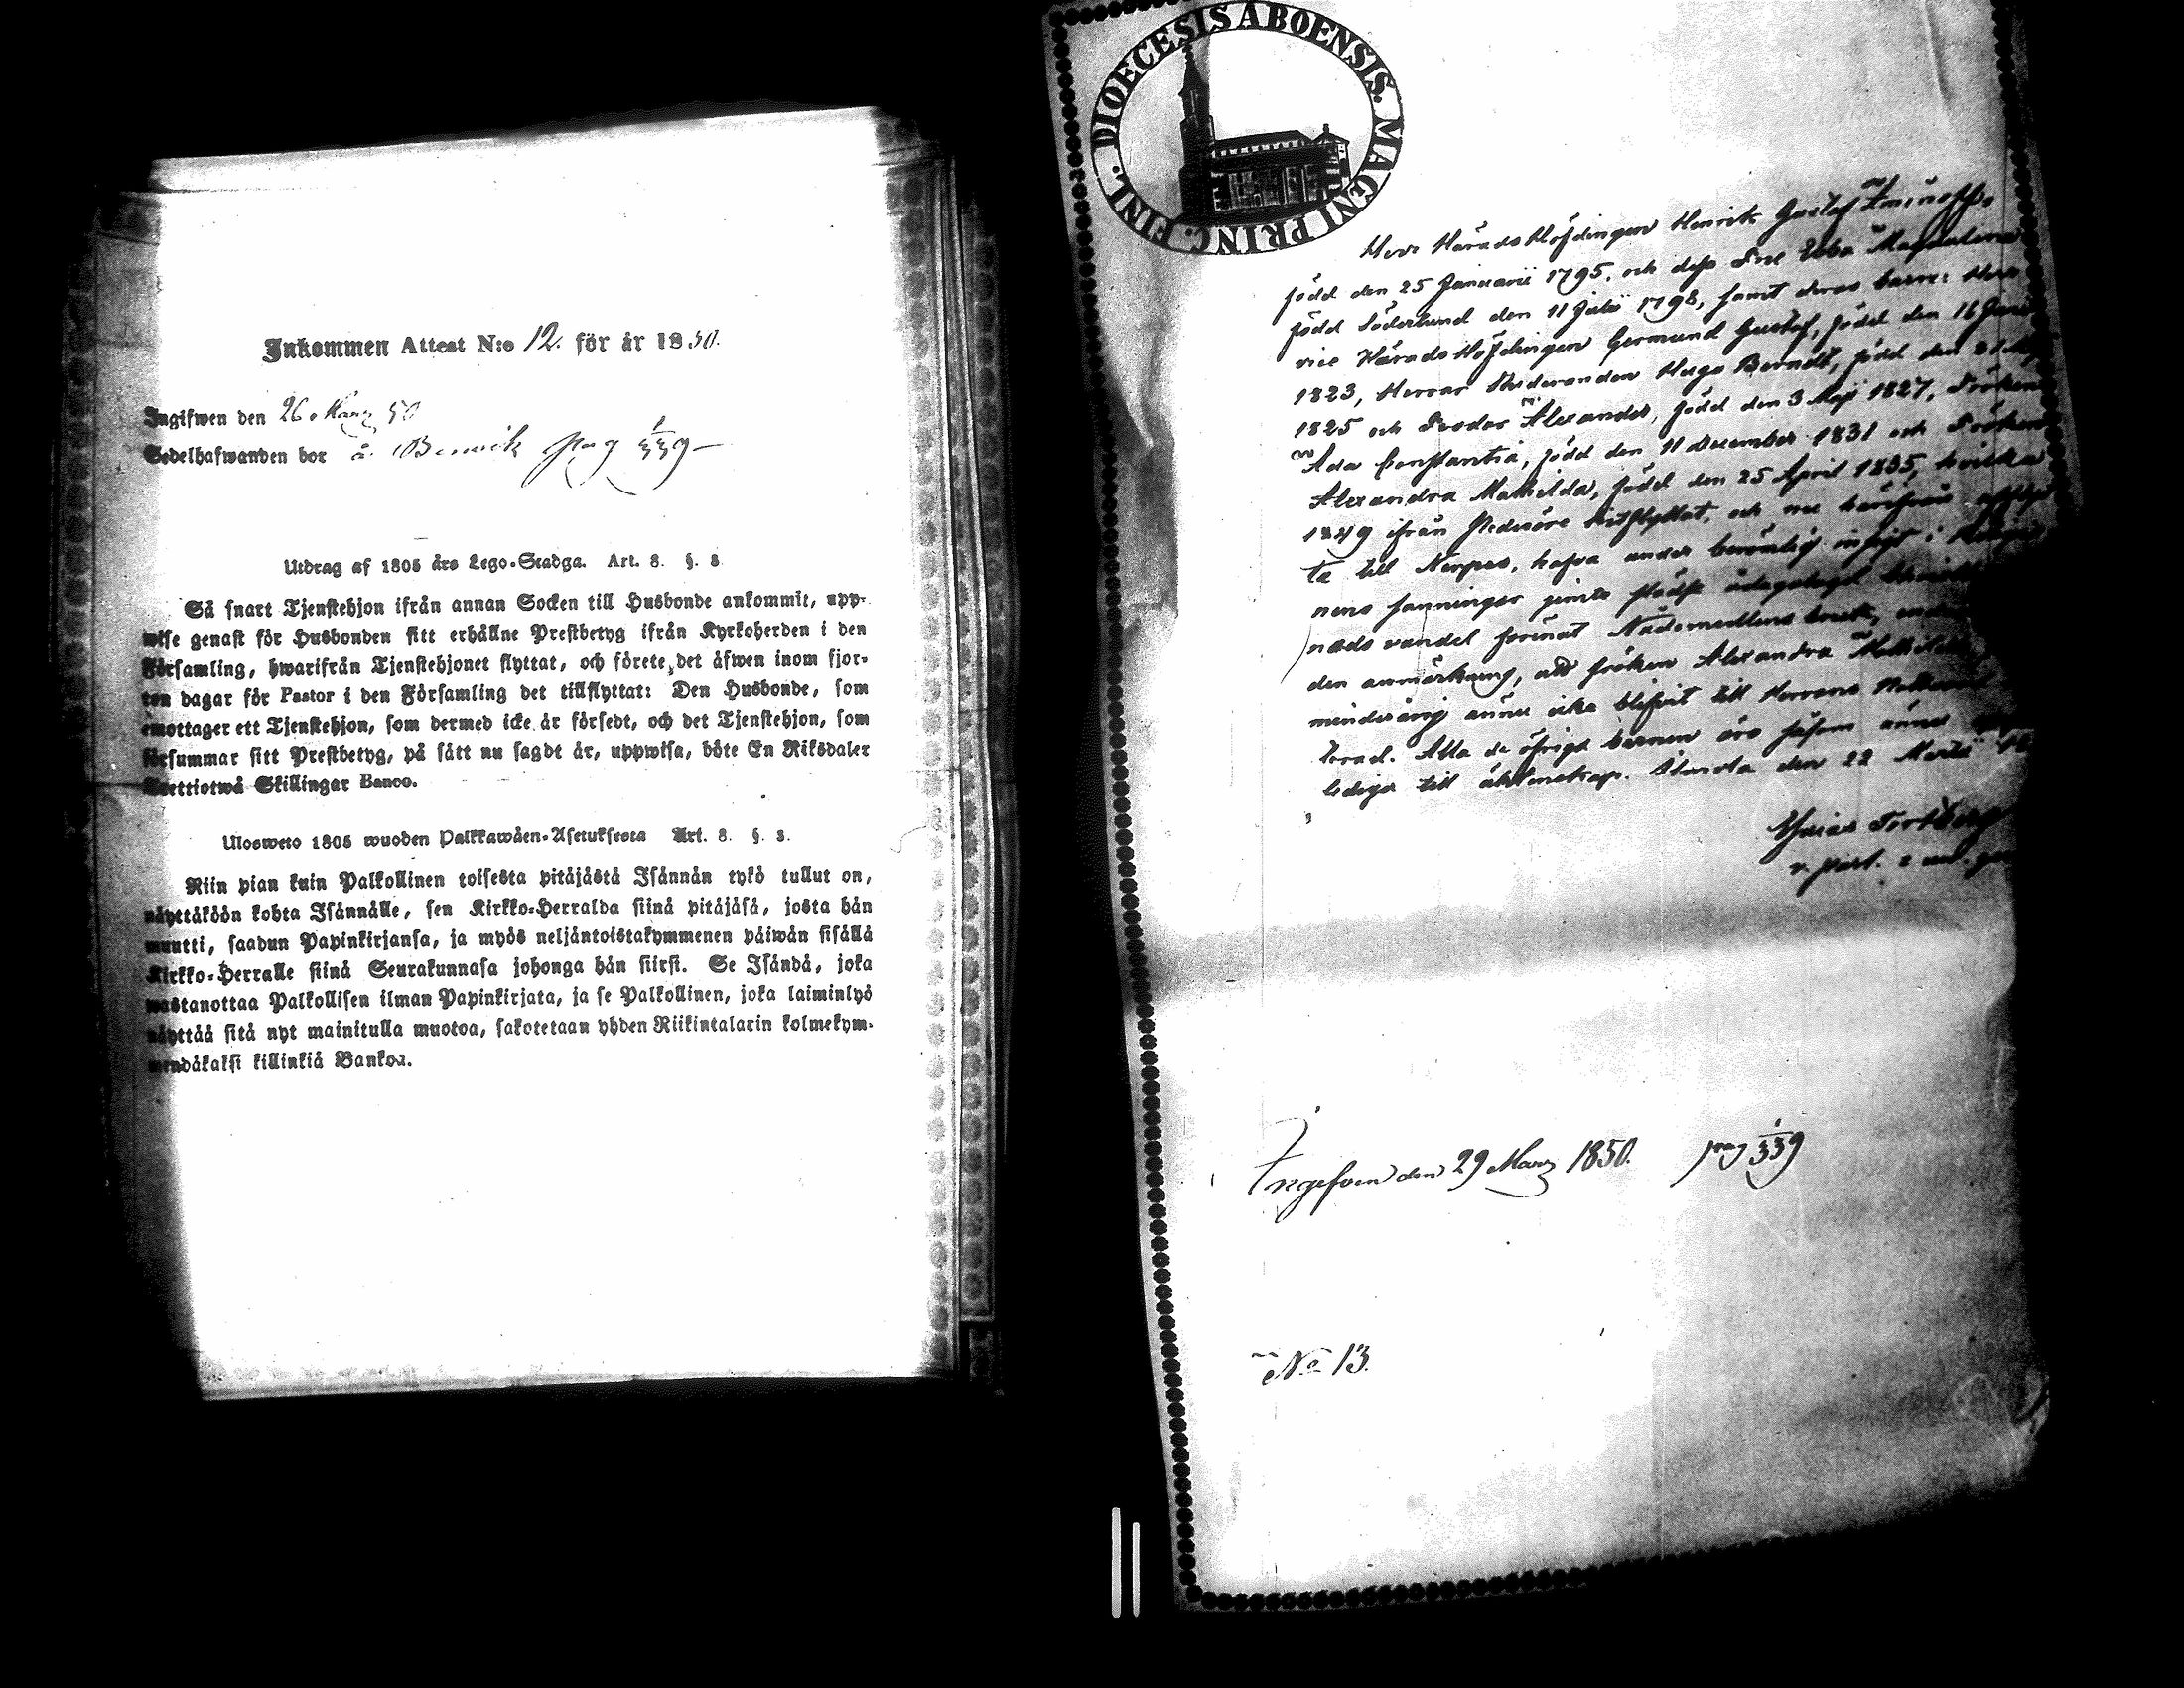 Inkommen Attest N:o 12. för år 1850.
Ingifwen den 26 Mars 50
Sedelhafwanden bor å Benvik pag 339
Utdrag af 1805 års Lego-Stadga. Art. 8. §. 3.
Så snart Tjenstehjon ifrån annan Socken till Husbonde ankommit, upp-
wise genast för Husbonden sitt erhållne Prestbetyg ifrån Kyrkoherden i den
Församling, hwarifrån Tjenstehjonet flyttat, och förete det äfwen inom fjor-
ton dagar för Pastor i den Församling det tillflyttat: Den Husbonde, som
emottager ett Tjenstehjon, som dermed icke är försedt, och det Tjenstehjon, som
försummar sitt Prestbetyg, på sätt nu sagdt är, uppwisa, böte En Riksdaler
Trettiotwå Skillingar Banco.
Ulosweto 1805 wuoden Palkkawäen-Asetuksesta Art. 8. §. 3.
Niin pian kuin Palkollinen toisesta pitäjästä Isännän tykö tullut on,
näyttäköön kohta Isännälle, sen Kirkko-Herralda siinä pitäjäsä, josta hän
muutti, saadun Papinkirjansa, ja myös neljäntoistakymmenen päiwän sisällä
Kirkko-Herralle siinä Seurakunnasa johonga hän siirsi. Se Isändä, joka
wastanottaa Palkollisen ilman Papinkirjata, ja se Palkollinen, joka laiminlyö
näyttää sitä nyt mainitulla muotoa, sakotetaan yhden Riikintalarin kolmekym-
mendäkaksi killinkiä Bankoa.
DIOECESIS ABOENSIS. MAGNI PRINC. FINL.
Herr HäradsHöfdingen Henrik Gustaf
född den 25 Januarii 1795, och dess Fru Ebba Magdalena
född Söderlund den 11 Julii 1798, samt deras barn: Herr
vice HäradsHöfdingen Germund Gustaf, född den 16 Juni
1823, Herrar Studeranden Hugo Berndt, född den 21
1825 och Feodor Alexander, född den 3 Maji 1827, Fröken
Ada Constantia, född den 11 December 1831 och Fröken
Alexandra Mathilda, född den 25 April 1835, hvilka
1849 ifrån Pedersöre hitflyttat, och nu härifrån afflyt
ta till Nerpes, hafva under berömlig insigt i
nens sanningar jemte städse ådagalagd
nads vandel förenat Nådemedlens bruk,
den anmärkning, att fröken Alexandra Mathilda
minderårig ännu icke blifvit till Herrans Nattvard
terad. Alla de öfriga barnen äro såsom ännu
lediga till äktenskap. den 22 Martii
v. past.
Ingifven den 29 Mars 1850. pag 339
No 13.